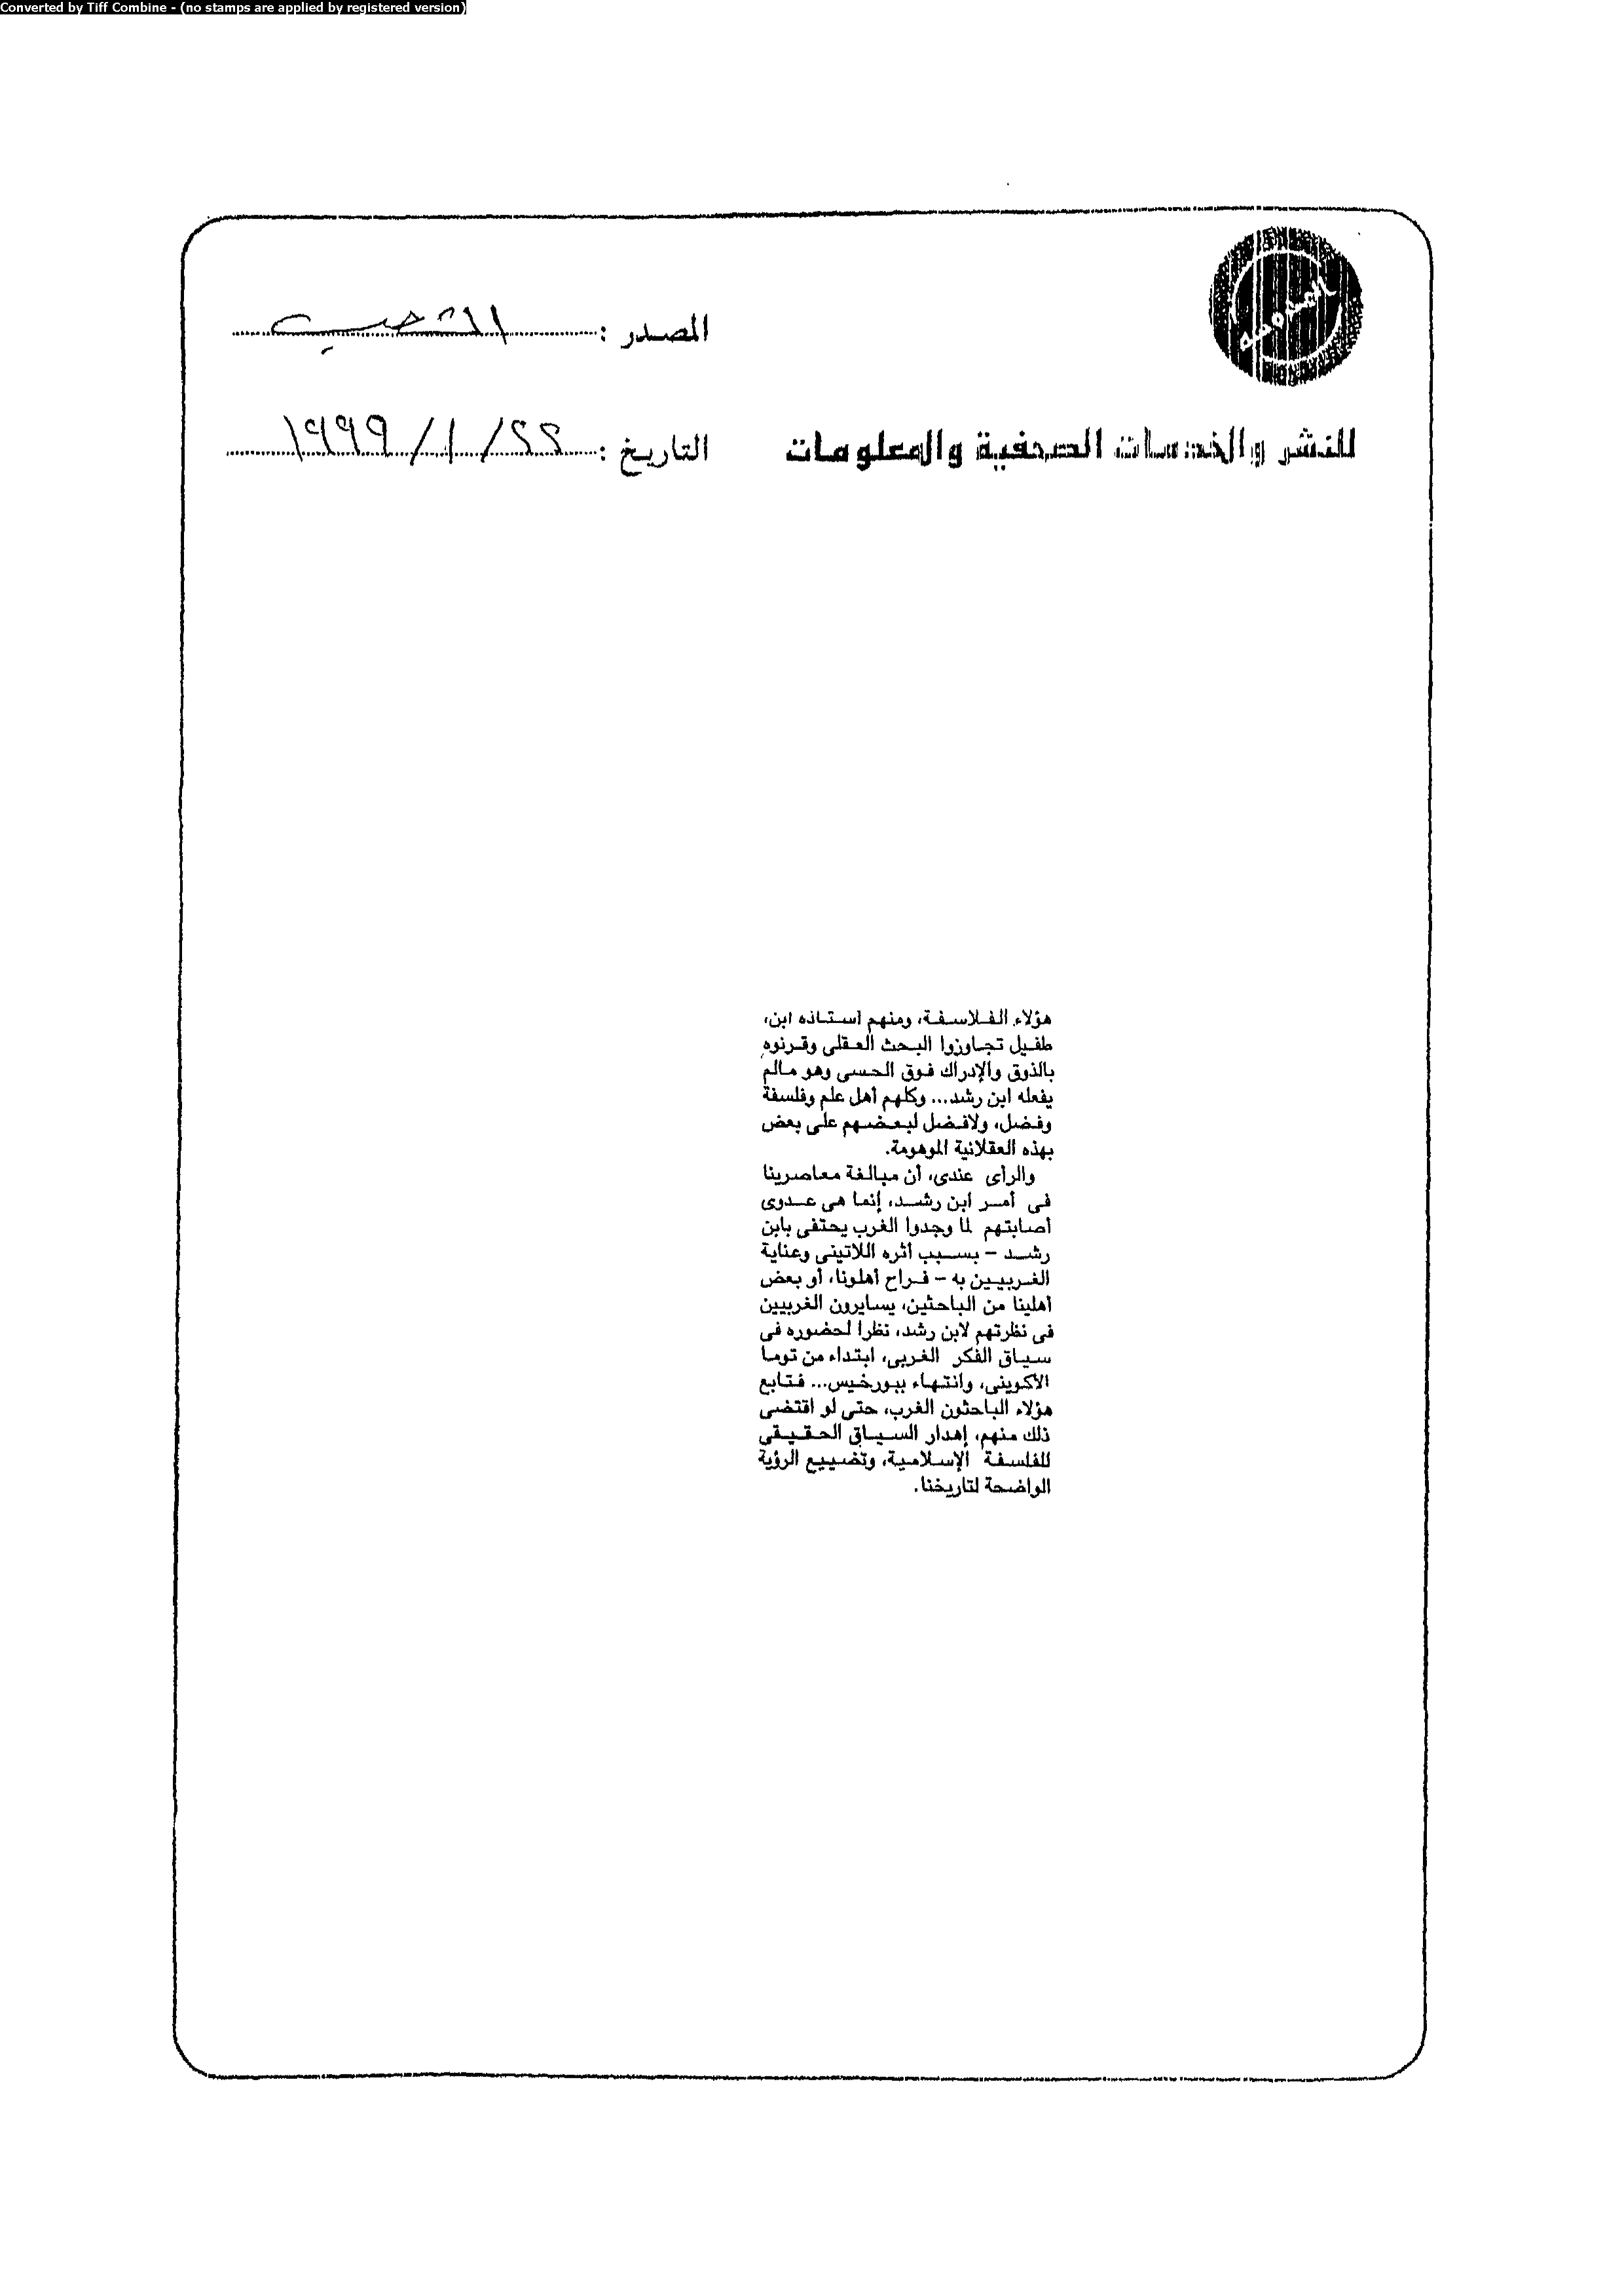 Converted by Tiff Combine - (no stamps are applied by registered version)
المصدر : الشعب
للنشر والخدمات الصحفية والمعلومات
التاريخ : ٢٢/ ١/ ١٩٩٩
هؤلاء الفلاسفة، ومنهم استاذه ابن،
طفيل تجاوزوا البحث العقلى وقرنوه
بالذوق والإدراك فوق الحسى وهو مالم
يفعله ابن رشد... وكلهم أهل علم وفلسفة
وفضل، ولافضل لبعضهم على بعض
بهذه العقلانية الموهومة.
والرأى عندى، أن مبالغة معاصرينا
فى أمر ابن رشد، إنما هى عدوى
أصابتهم لما وجدوا الغرب يحتفى بابن
رشد – بسبب أثره اللاتينى وعناية
الغربيين به – فراح أهلونا، أو بعض
أهلينا من الباحثين، يسايرون الغربيين
فى نظرتهم لابن رشد، نظرا لحضوره فى
سياق الفكر الغربى، ابتداء من توما
الاكوينى، وانتهاء ببورخيس... فتابع
هؤلاء الباحثون الغرب، حتى لو اقتضى
ذلك منهم، إهدار السياق الحقيقى
للفلسفة الإسلامية، وتضييع الرؤية
الواضحة لتاريخنا.